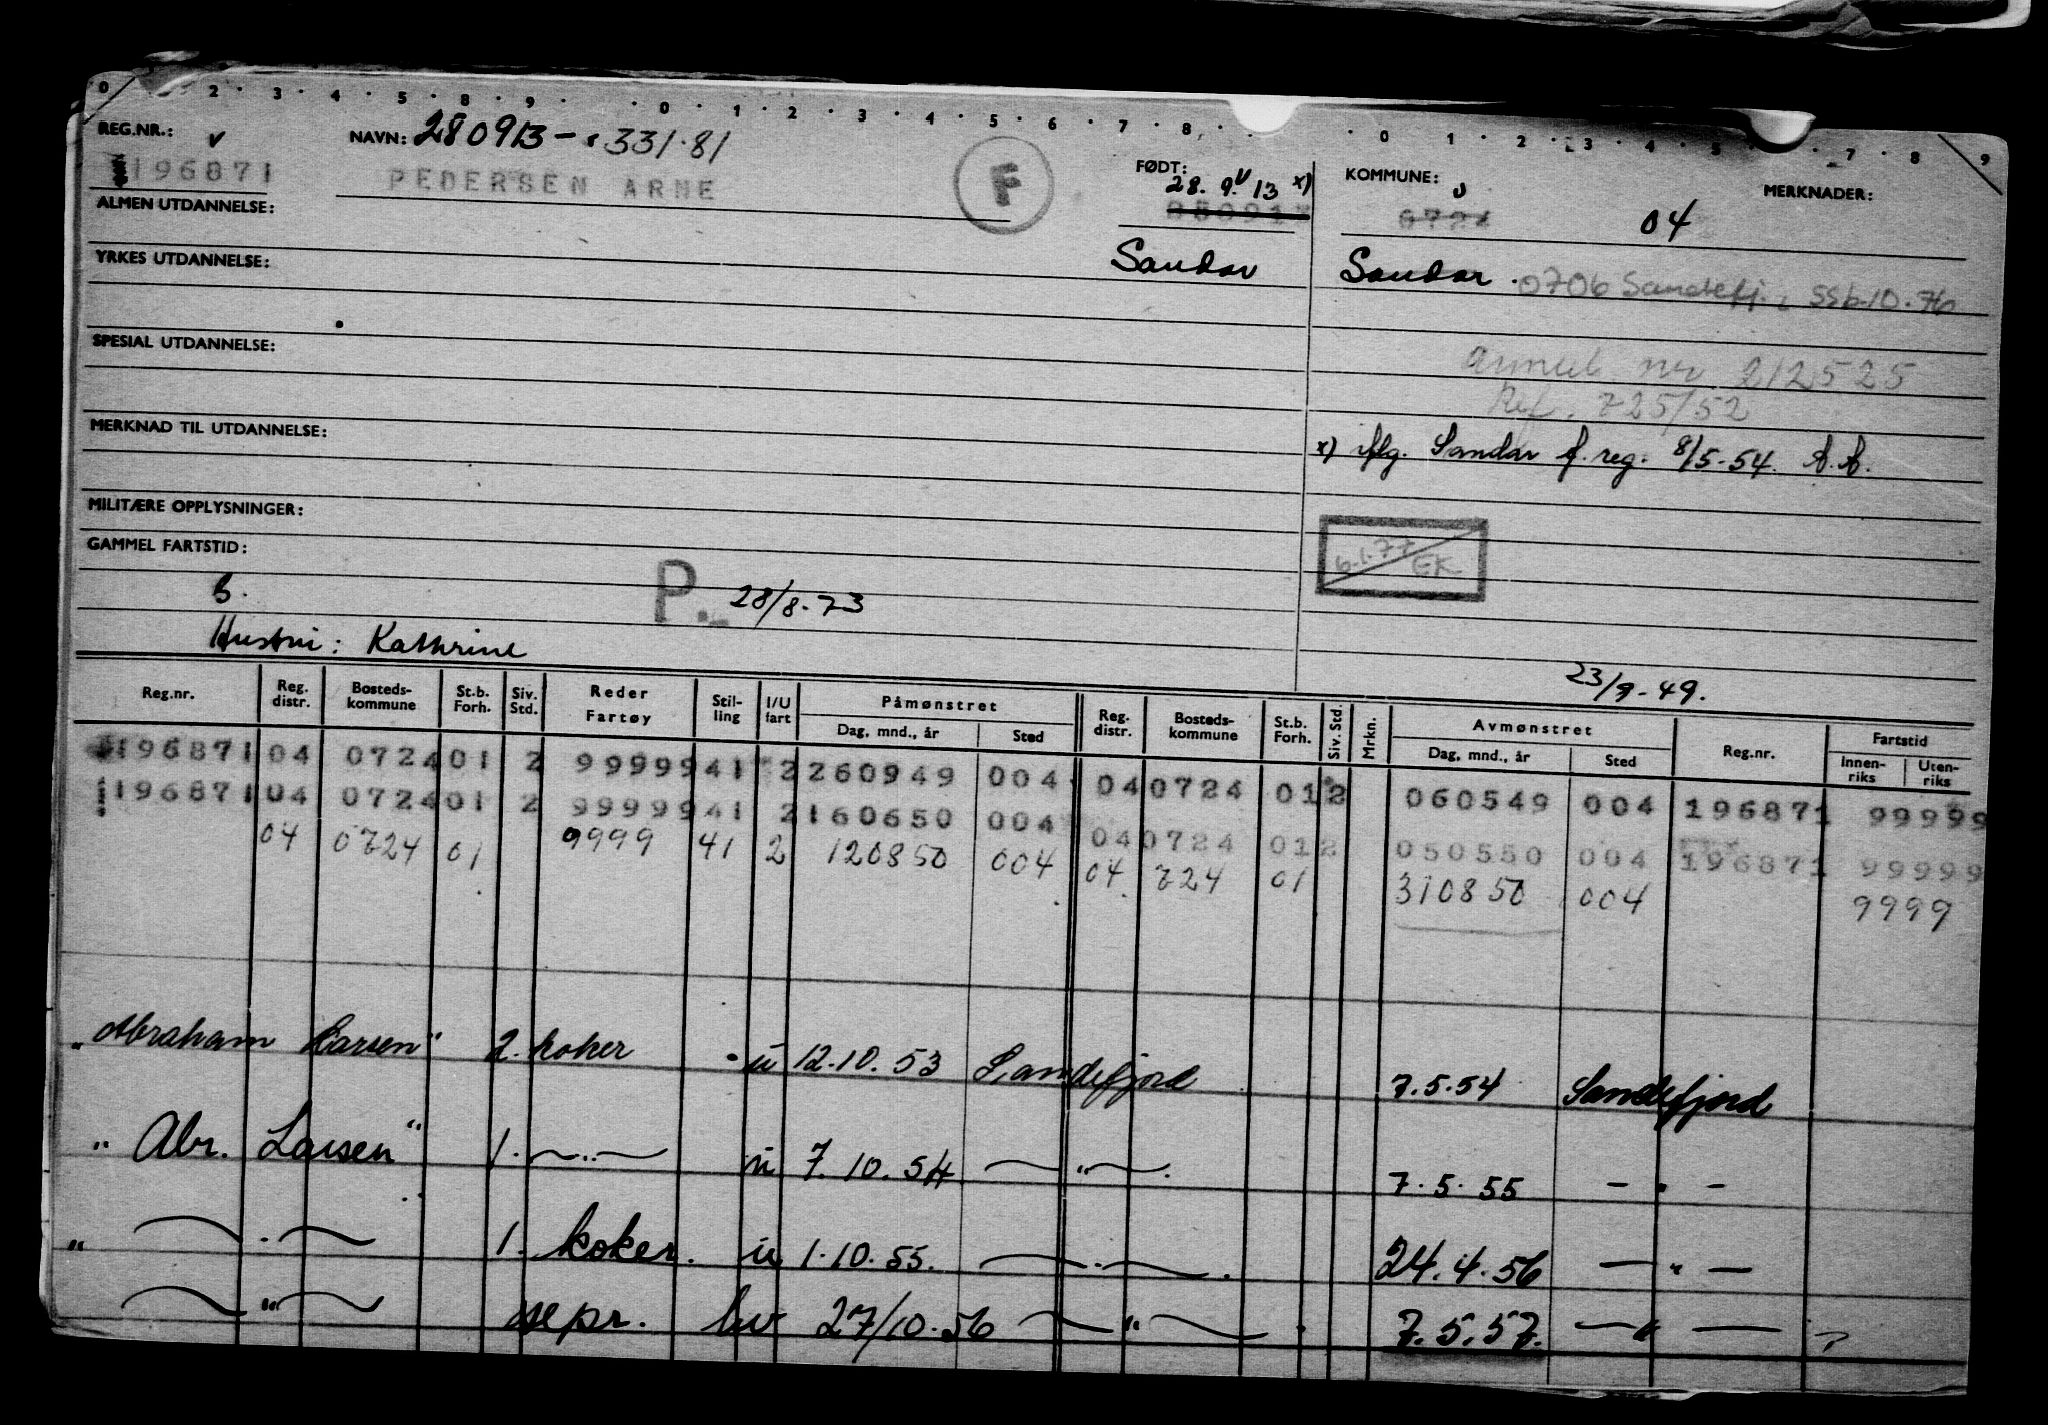 0 2 3 4 5 8 9 0 1 2 3 4 5 6 7 8 0 1 2 3 4 5 7 8 9
REG.NR.: NAVN: 280913 - 331.81
196871 PEDERSEN ARNE F FØDT: 28.9.13 x) KOMMUNE: 0724 04 MERKNADER:
ALMEN UTDANNELSE:
YRKES UTDANNELSE: Sandar Sandar. 0706 Sandefj. 10.76
SPESIAL UTDANNELSE:
nr 212525
Ref. 725/52
MERKNAD TIL UTDANNELSE: x) iflg. Sandar f.reg. 8/5-54. A.A.
MILITÆRE OPPLYSNINGER:
GAMMEL FARTSTID: 6.1.77 EK
P. 28/8-73
Hustru: Kathrine
23/9-49.
Reg.nr. Reg. distr. Bosteds-kommune St.b. Forh. Siv. Std. Reder Fartøy Stil-ling I/U fart Påmønstret Dag, mnd., år Sted Reg. distr. Bosteds-kommune St.b. Forh. Siv. Std. Mrkn. Avmønstret Dag, mnd., år Sted Reg.nr. Fartstid Innen-riks Uten-riks
196871 04 0724 01 2 99999 41 2 260949 004 04 0724 01 2 060549 004 196871 99999
196871 04 0724 01 2 99999 41 2 160650 004 04 0724 01 2 050550 004 196871 99999
04 0724 01 9999 41 2 120850 004 04 724 01 310850 004 9999
"Abraham Larsen" 2. koker u 12.10.53 Sandefjord 7.5.54 Sandefjord
"Abr. Larsen" 1. —"— u 7.10.54 —"— 7.5.55 —"—
" —"— 1. koker. u 1.10.55. —"— 24.4.56 —"—
—"— sepr. hv 27/10.56 —"— 7.5.57. —"—